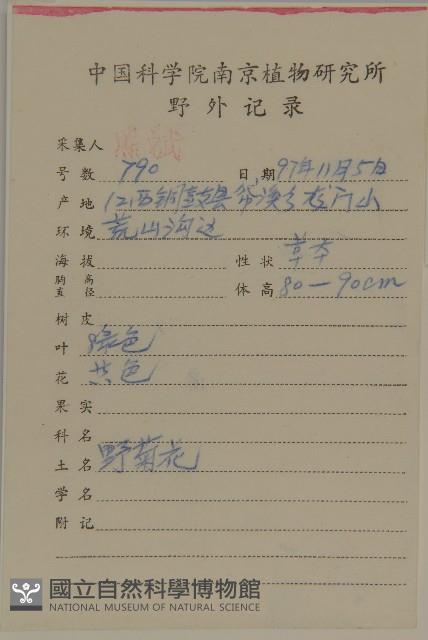 中国科学院南京植物研究所
野外记录
采集人
号数 790 日期 97年11月5日
产地 江西铜鼓县 龙门山
环境 荒山沟边
海拔 性状 草本
胸高直径 体高 80—90cm
树皮
叶 绿色
花 黄色
果实
科名
土名 野菊花
学名
附记
國立自然科學博物館
NATIONAL MUSEUM OF NATURAL SCIENCE